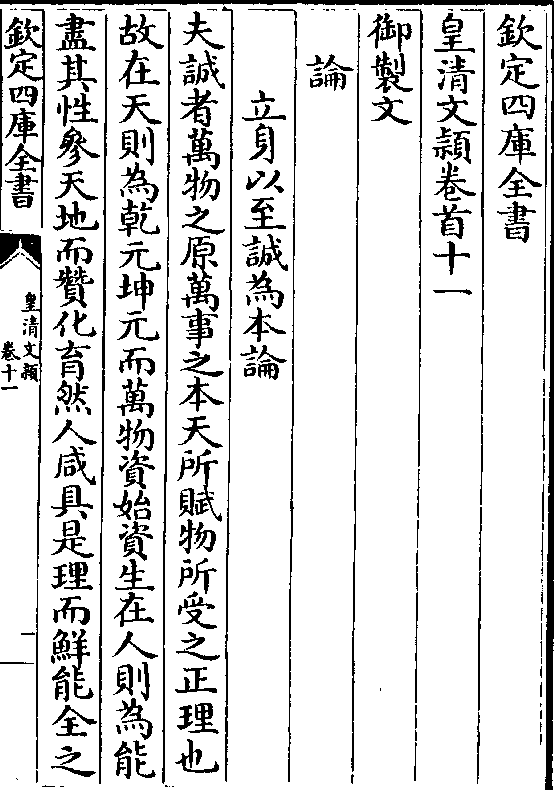 欽定四庫全書
皇清文穎卷首十一
御製文
論
立身以至誠為本論
夫誠者萬物之原萬事之本天所賦物所受之正理也
故在天則為乾元坤元而萬物資始資生在人則為能
盡其性參天地而贊化育然人咸具是理而鮮能全之
欽定四庫全書
皇清文穎
卷十一
一